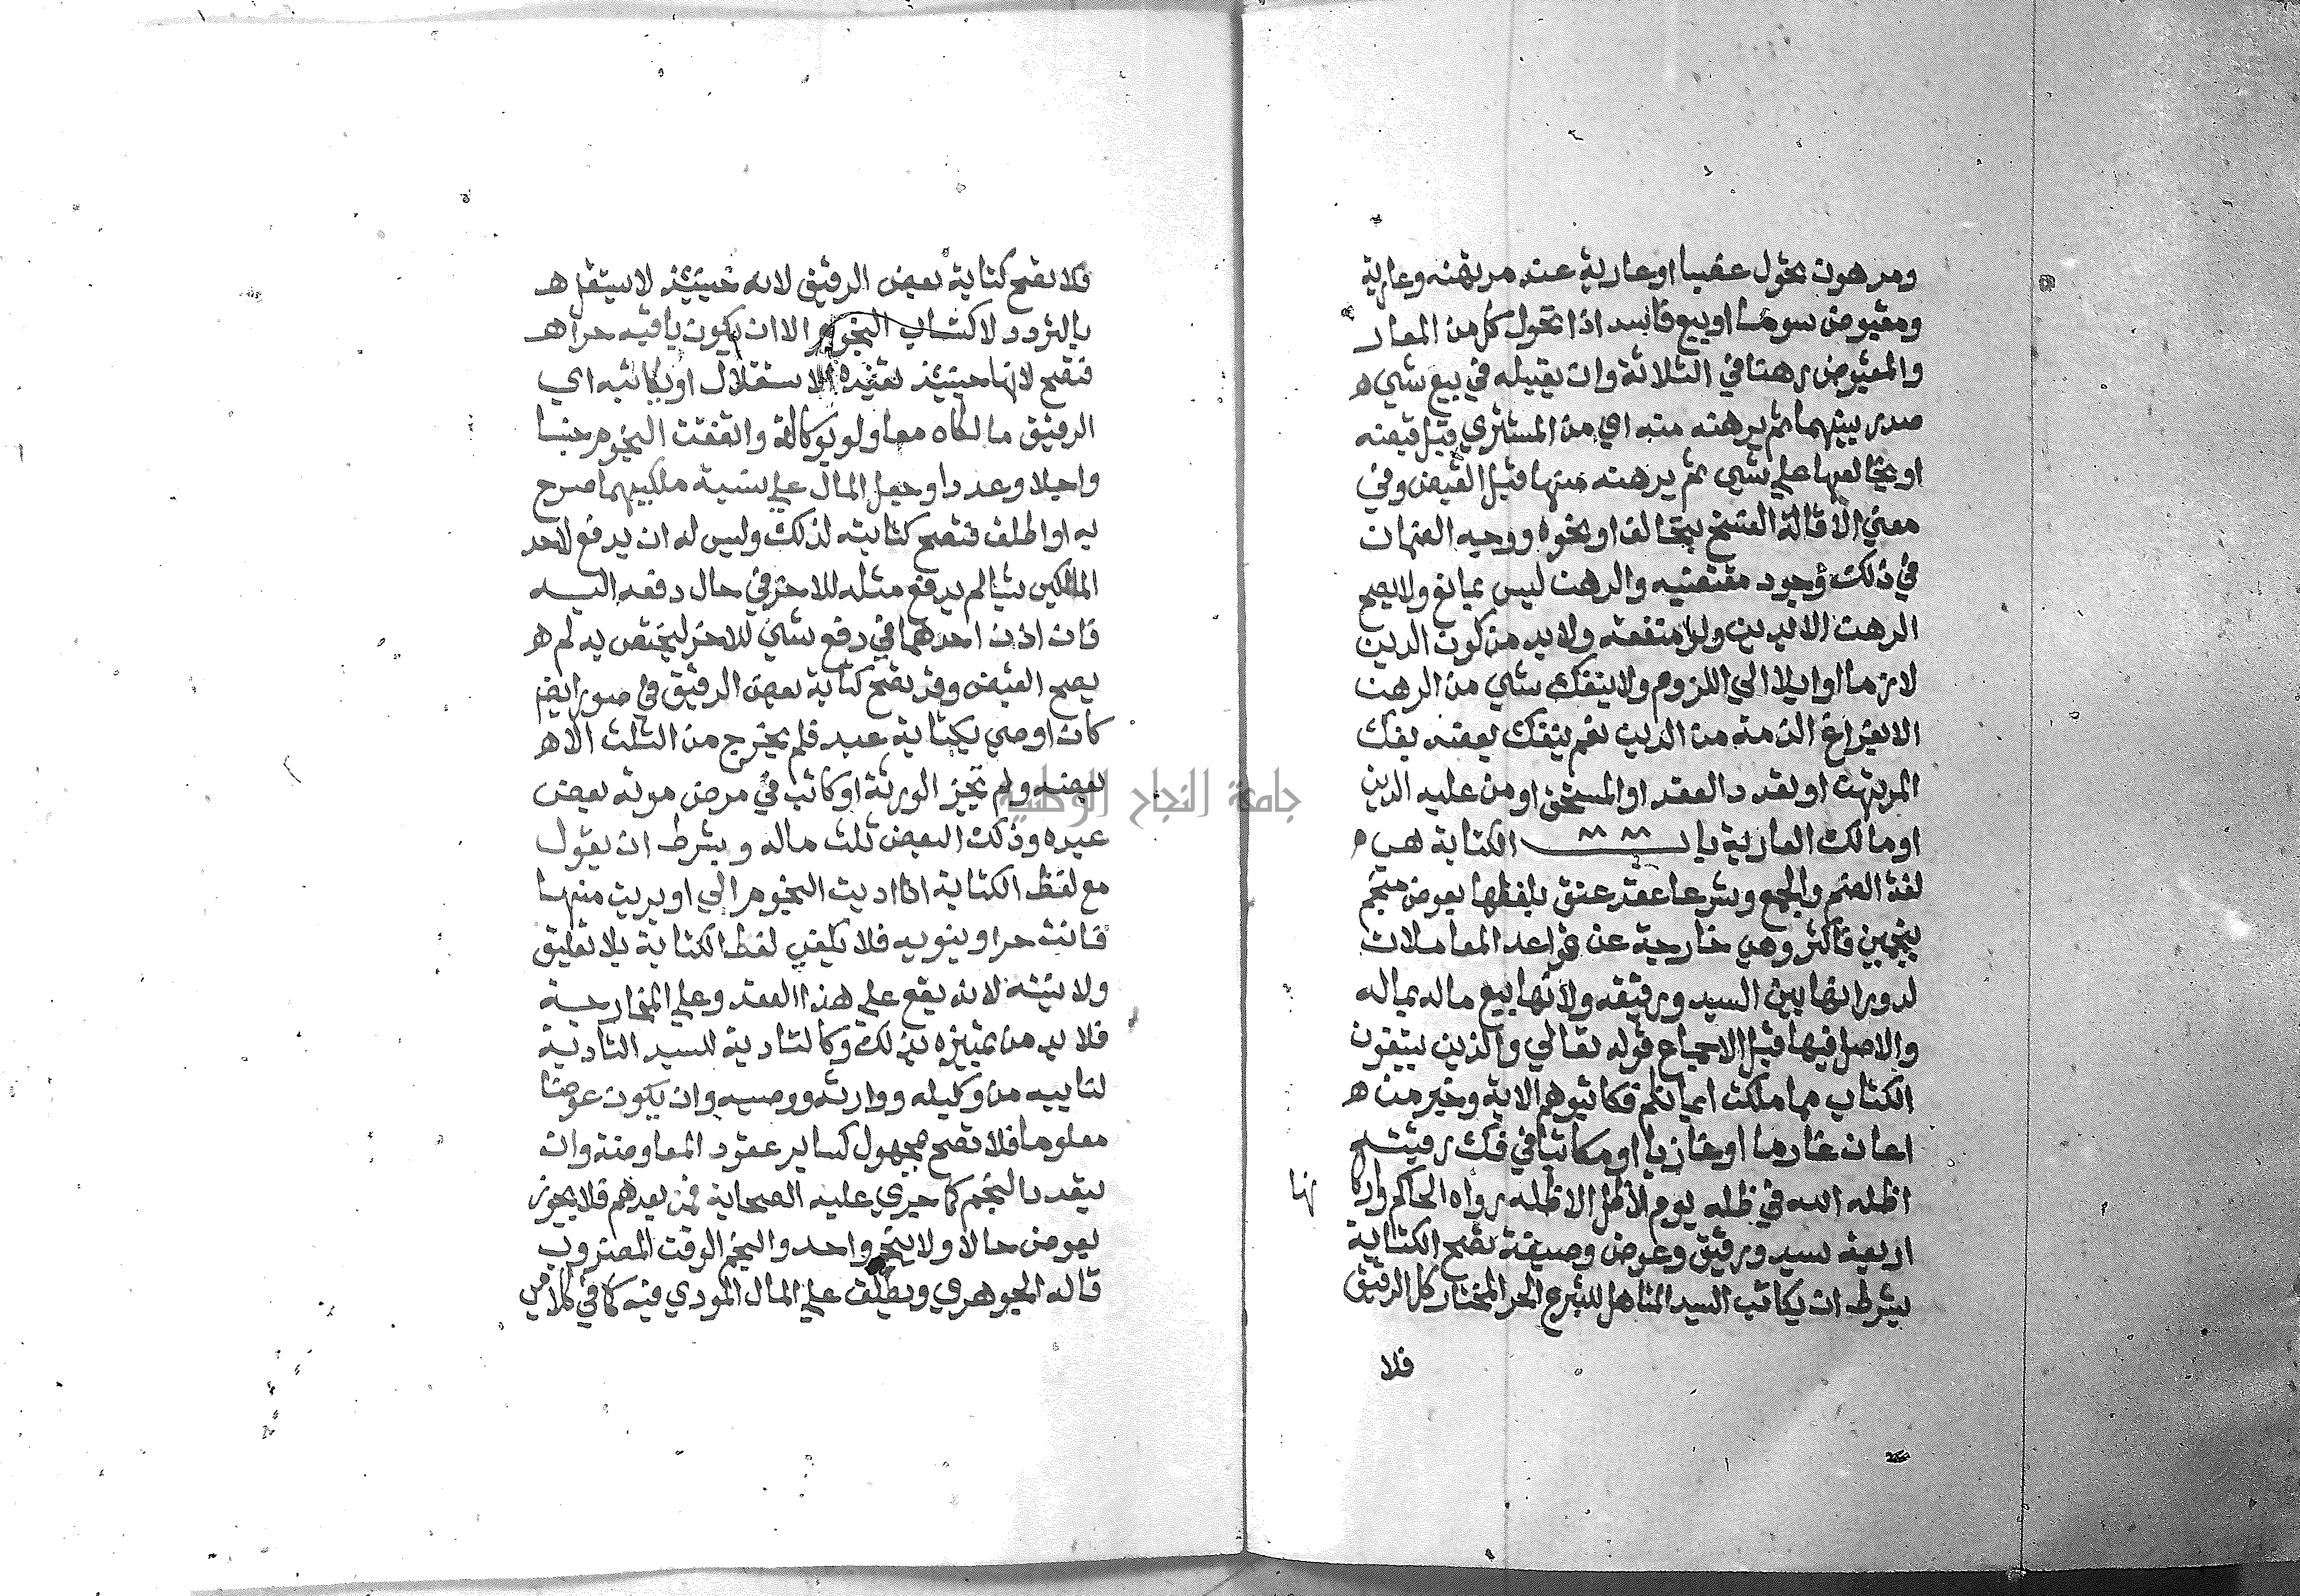 ومرهون تحول غصبا او عارية عند مرتهنه وعارية
ومقبوض سوما او بيع فاسد اذا تحول كل من المعار
والمقبوض رهنا في الثلاثة وان يقيله في بيع شيء ه
صدر بينهما ثم يرهنه منه اي من المشتري قبل قبضه
او يخالعها علي شيء ثم يرهنه منها قبل القبض وفي
معني الاقالة الفسخ بتحالف او نحوه ووجه الضمان
في ذلك وجود مقتضيه والرهن ليس بمانع ولا يصح
الرهن الا بدين ولو منفعة ولا بد من كون الدين
لازما او ايلا الي اللزوم ولا ينفك شيء من الرهن
الا بفراغ الذمة من الدين نعم ينفك بعضه بفك
المرتهن او تعدد العقد او المستحق او من عليه الدين
او مالك العارية باب الكتابة هي ه
لغة الضم والجمع وشرعا عقد عتق بلفظها بعوض منجم
بنجمين فاكثر وهي خارجة عن قواعد المعاملات
لدورانها بين السيد ورقيقه ولانها بيع ماله بماله
والاصل فيها قبل الاجماع قوله تعالي والذين يبتغون
الكتاب مما ملكت ايمانكم فكاتبوهم الاية وخبر من ه
اعان غارما او غازيا او مكاتبا في فك رقبته
اظله الله في ظله يوم لا ظل الا ظله رواه الحاكم واركا
نها
اربعة سيد ورقيق وعوض وصيغة تصح الكتابة
بشرط ان يكاتب السيد المتاهل للتبرع الحر المختار كل الرقيق
فلا
فلا تصح كتابة بعض الرقيق لانه حينيذ لا يستقل ه
بالتردد لاكتساب النجوم الا ان يكون باقيه حرا ه
فتصح لانها حينيذ تفيده الاستقلال او يكاتبه اي
الرقيق مالكاه معا ولو بوكالة واتفقت النجوم جنسا
واجلا وعددا وجعل المال علي نسبة ملكيهما صرح
به او اطلق فتصح كتابته لذلك وليس له ان يدفع لاحد
المالكين شيا لم يدفع مثله للاخر في حال دفعه اليه
فان اذن احدهما في دفع شيء للاخر ليختص به لم ه
يصح القبض وقد تصح كتابة بعض الرقيق في صور ايضا
كان اوصي بكتابة عبد فلم يخرج من الثلث الا ه
بعضه ولم تجز الورثة او كاتب في مرض موته بعض
عبده وذلك البعض ثلث ماله وبشرط ان يقول
مع لفظ الكتابة اذا اديت النجوم الي او بريت منها
فانت حر او ينويه فلا يكفي لفظ الكتابة بلا تعليق
ولا نية لانه يقع علي هذا العقد وعلي المخارجة
فلا بد من تمييزه بذلك وكالتادية للسيد التادية
لنايبه من وكيله ووارثه ووصيه وان يكون عوضا
معلوما فلا تصح بمجهول كساير عقود المعاوضة وان
يقدر بالنجم كما جري عليه الصحابة فمن بعدهم فلا يجوز
بعوض حالا ولا بنجم واحد والنجم الوقت المضروب
قاله الجوهري ويطلق علي المال المودي فيه كما في كلامي
جامعة النجاح الوطنية